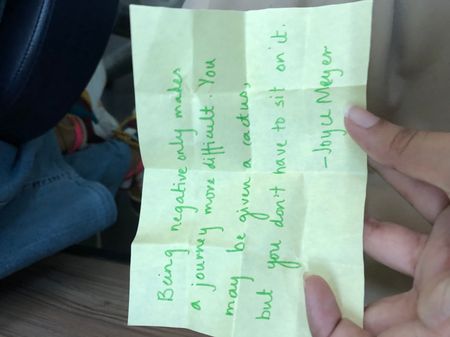 Being negative only makes
a journey more difficult. You
may be given a cactus,
but you don't have to sit on it.
-Joyce Meyer